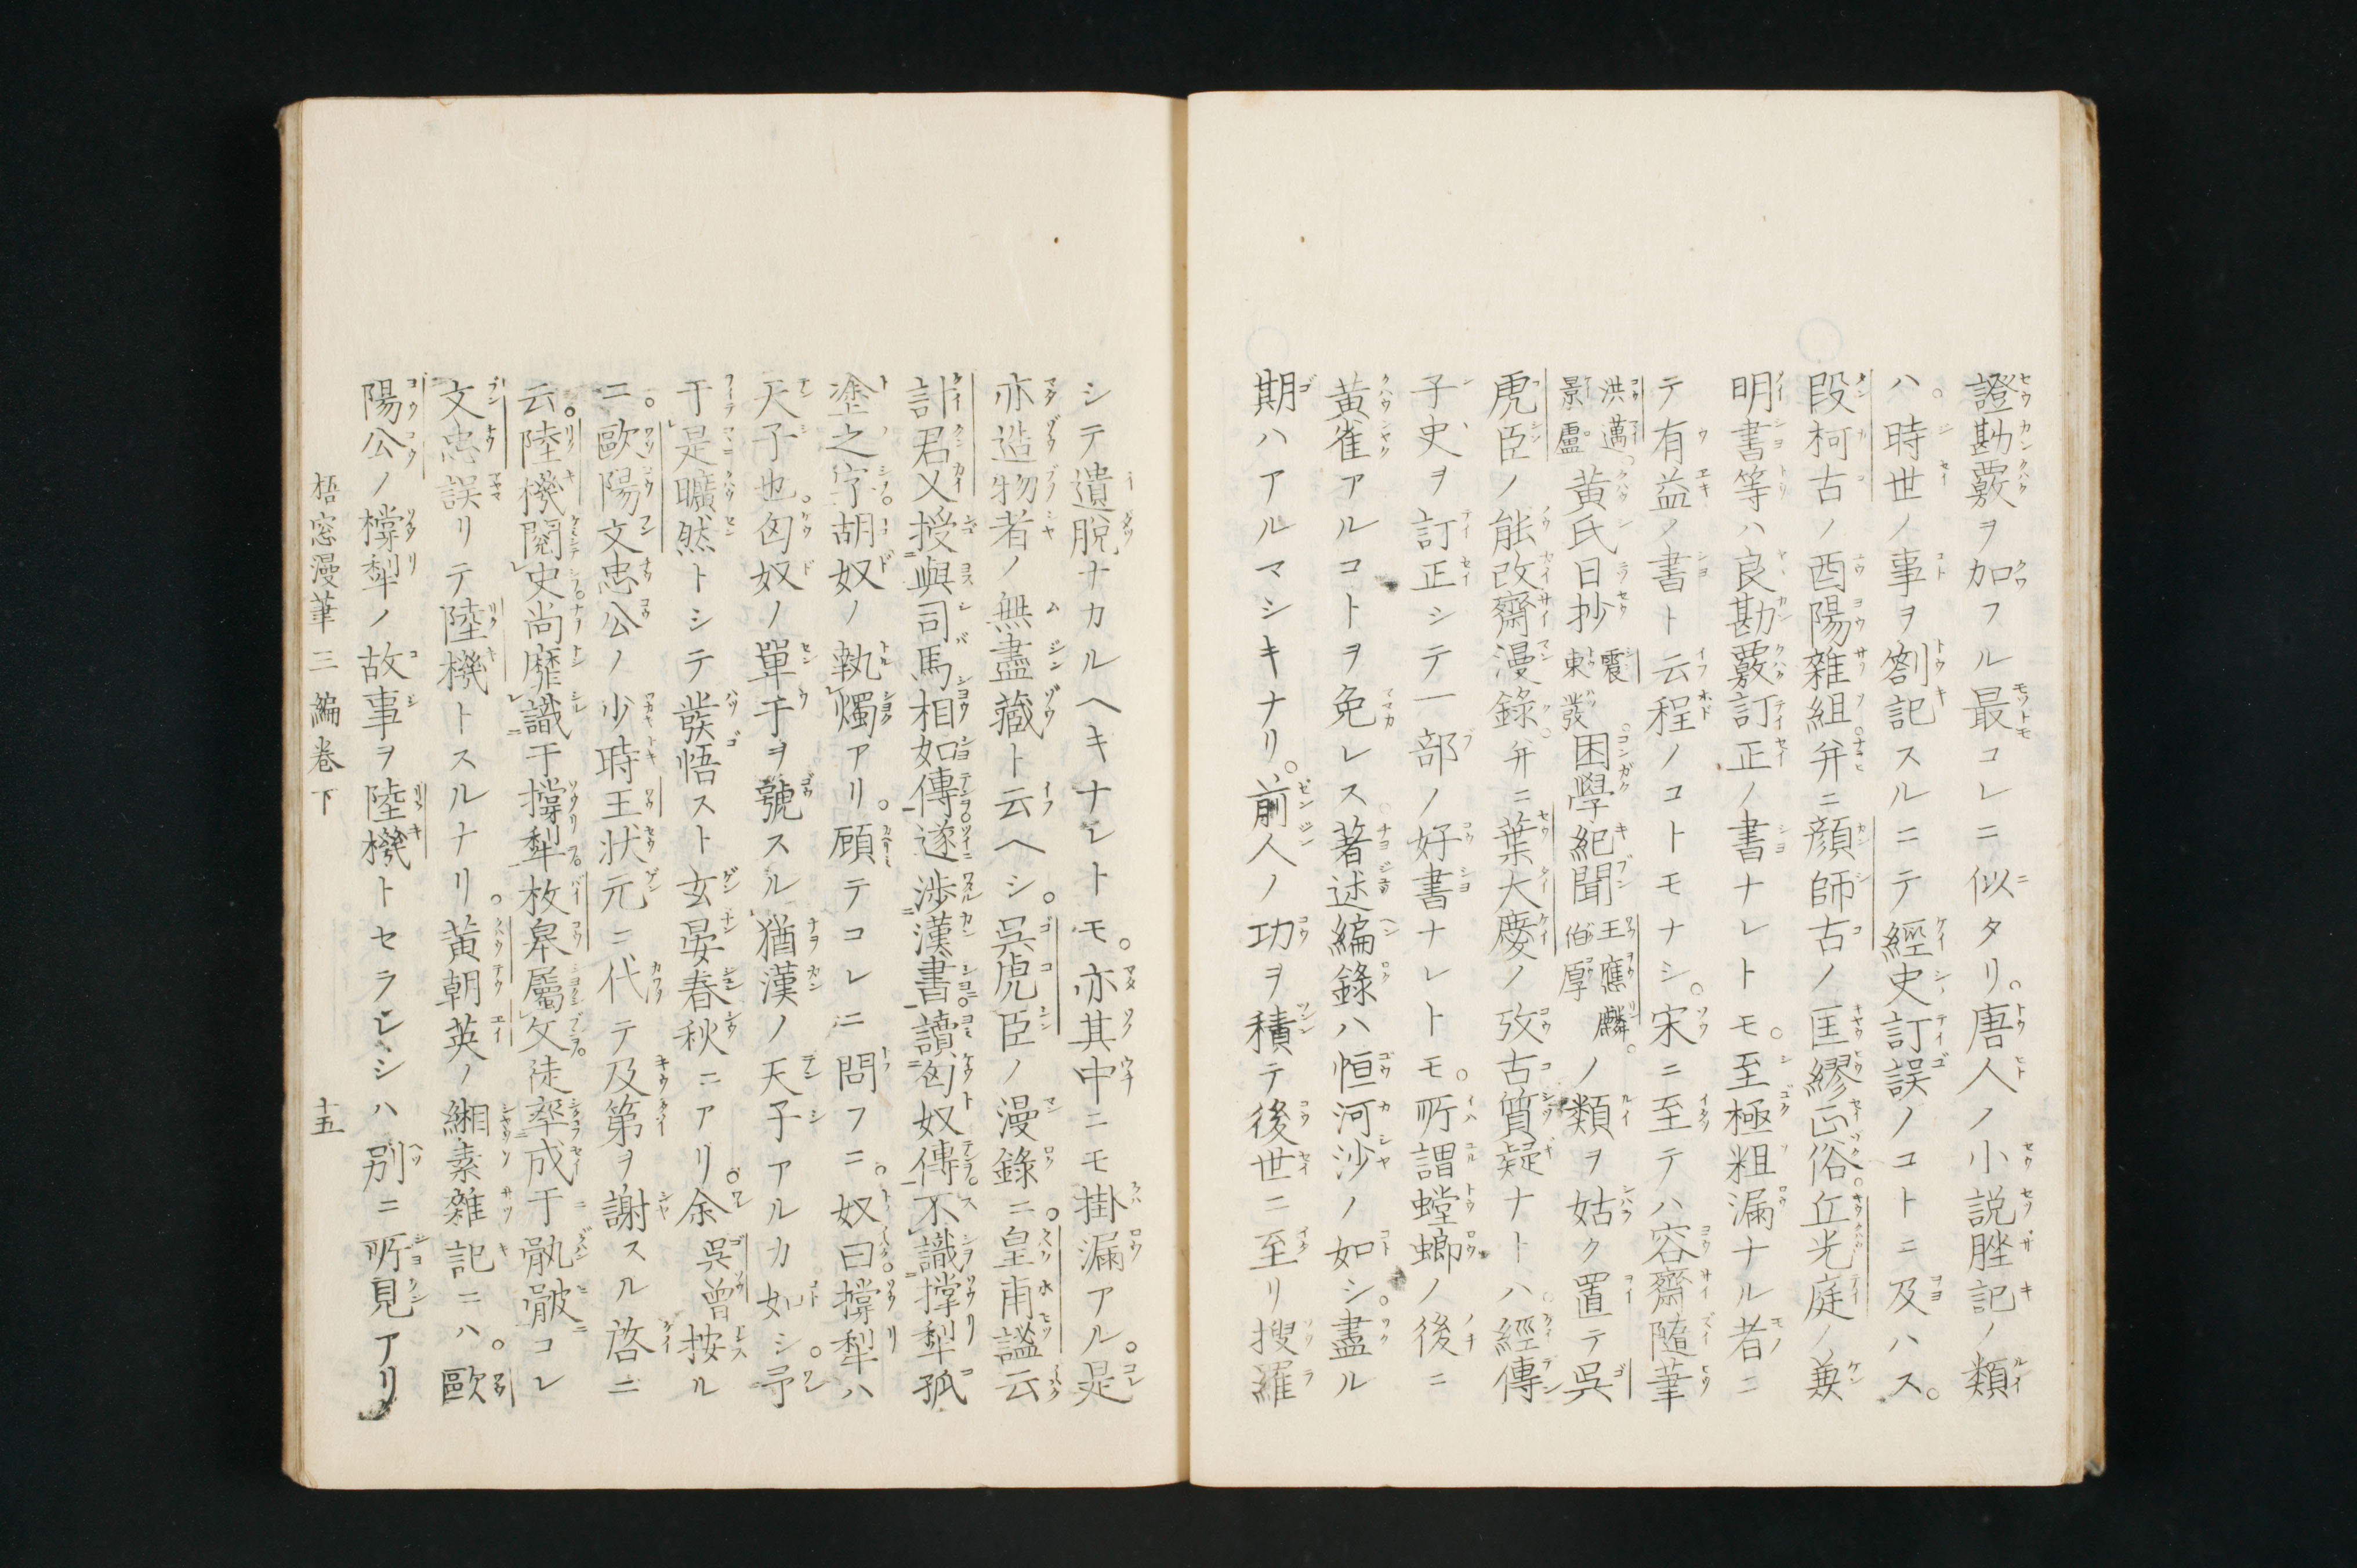 證勘覈ヲ加フル最コレニ似タリ。唐人ノ小説脞記ノ類
ハ。時世ノ事ヲ劄記スルニテ經史訂誤ノコトニ及ハス。
段柯古ノ酉陽雜組。弁ニ顔師古ノ匡繆正俗。丘光庭ノ兼
明書等ハ良勘覈訂正ノ書ナレトモ。至極粗漏ナル者ニ
テ有益ノ書ト云程ノコトモナシ。宋ニ至テハ容齋隨筆
洪邁景盧。黃氏日抄震東發。困學紀聞王應麟伯厚。ノ類ヲ姑ク置テ吳
虎臣ノ能改齋漫錄。弁ニ葉大慶ノ攷古質疑ナトハ。經傳
子史ヲ訂正シテ一部ノ好書ナレトモ。所謂螳螂ノ後ニ
黃雀アルコトヲ免レス。著述編錄ハ恒河沙ノ如シ。盡ル
期ハアルマシキナリ。前人ノ功ヲ積テ後世ニ至リ搜羅
シテ遺脱ナカルヘキナレトモ。亦其中ニモ掛漏アル。是
亦造物者ノ無盡藏ト云ヘシ。吳虎臣ノ漫錄ニ。皇甫謐云
計君又授與司馬相如傳。遂渉漢書。讀匈奴傳。不識撐犁孤
塗之字。胡奴ノ執燭アリ。顧テコレニ問フニ。奴曰。撐犁ハ
天子也。匈奴ノ單于ヲ號スル猶漢ノ天子アルカ如シ。予
于是曠然トシテ發悟スト玄晏春秋ニアリ。余吳曾按ル
ニ。歐陽文忠公ノ少時王狀元ニ代テ及第ヲ謝スル啓ニ
云。陸機閱史。尚靡識干撐犁。枚皋屬文。徒率成于骫骳コレ
文忠誤リテ陸機トスルナリ。黃朝英ノ緗素雜記ニハ。歐
陽公ノ撐犁ノ故事ヲ陸機トセラレシハ別ニ所見アリ
梧窓漫筆三編巻下 十五